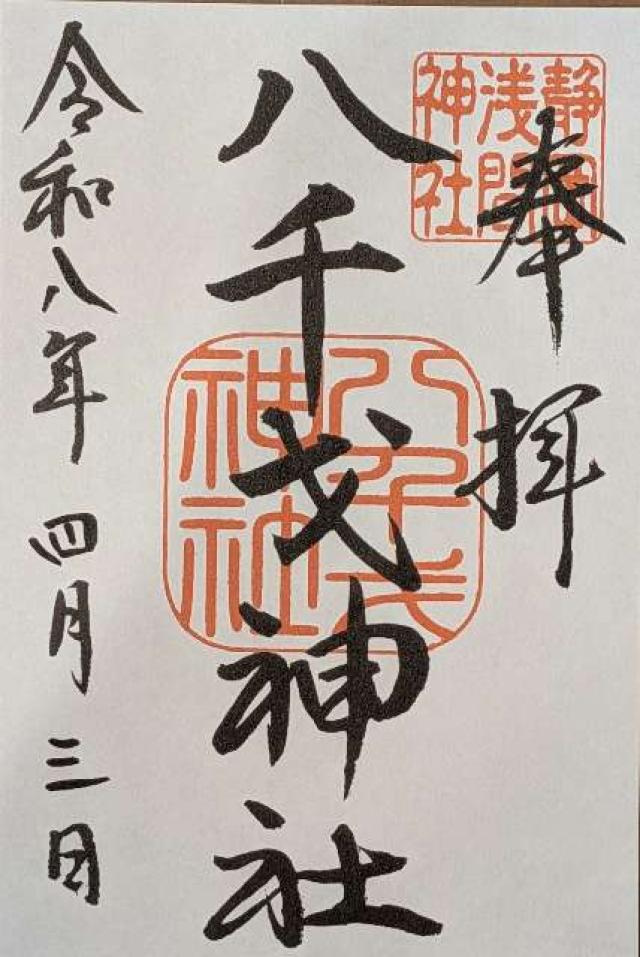 奉拝
静岡
浅間
神社
八千戈神社
八千戈
神社
令和八年 四月 三日